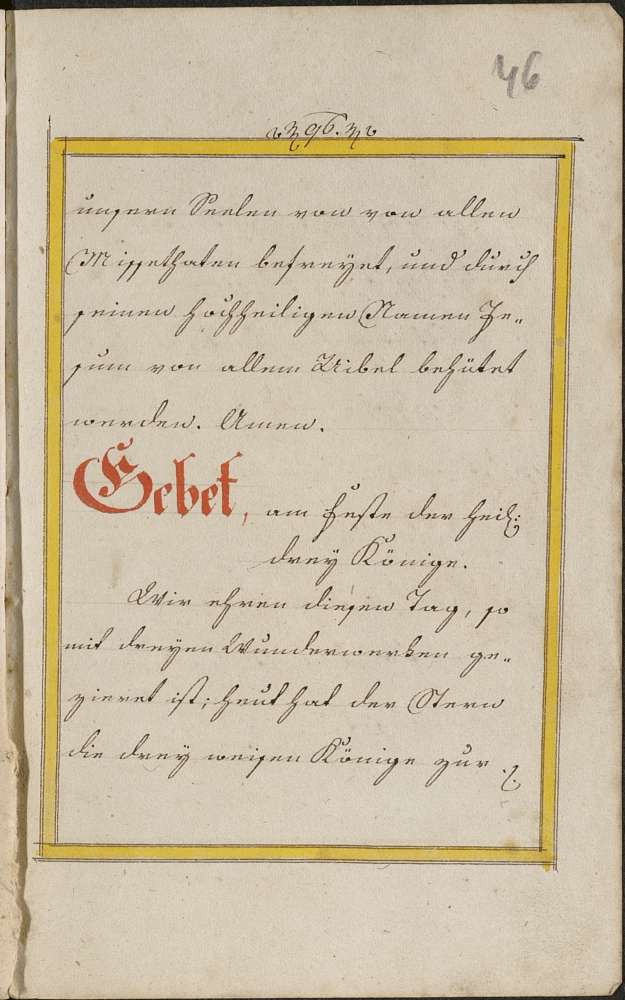 46
96.
unsern Seelen von von allen
Missethaten befreyet, und durch
seinen hochheiligen Namen Je„
sum von allem Uibel behütet
werden. Amen.
Gebet, am Feste der Heil:
drey Könige.
Wir ehren diesen Tag, so
mit dreyen Wunderwerken ge„
zieret ist; heut hat der Stern
die drey weisen Könige zur